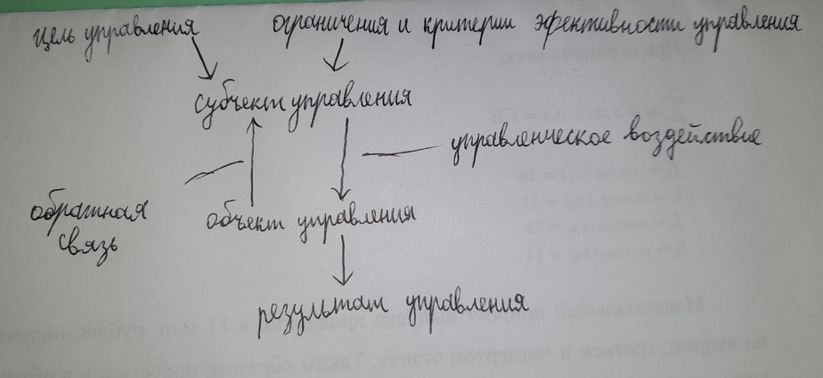 цель управления
ограничения и критерии эфективности управления
субъект управления
управленческое воздействие
обратная
связь
объект управления
результат управления